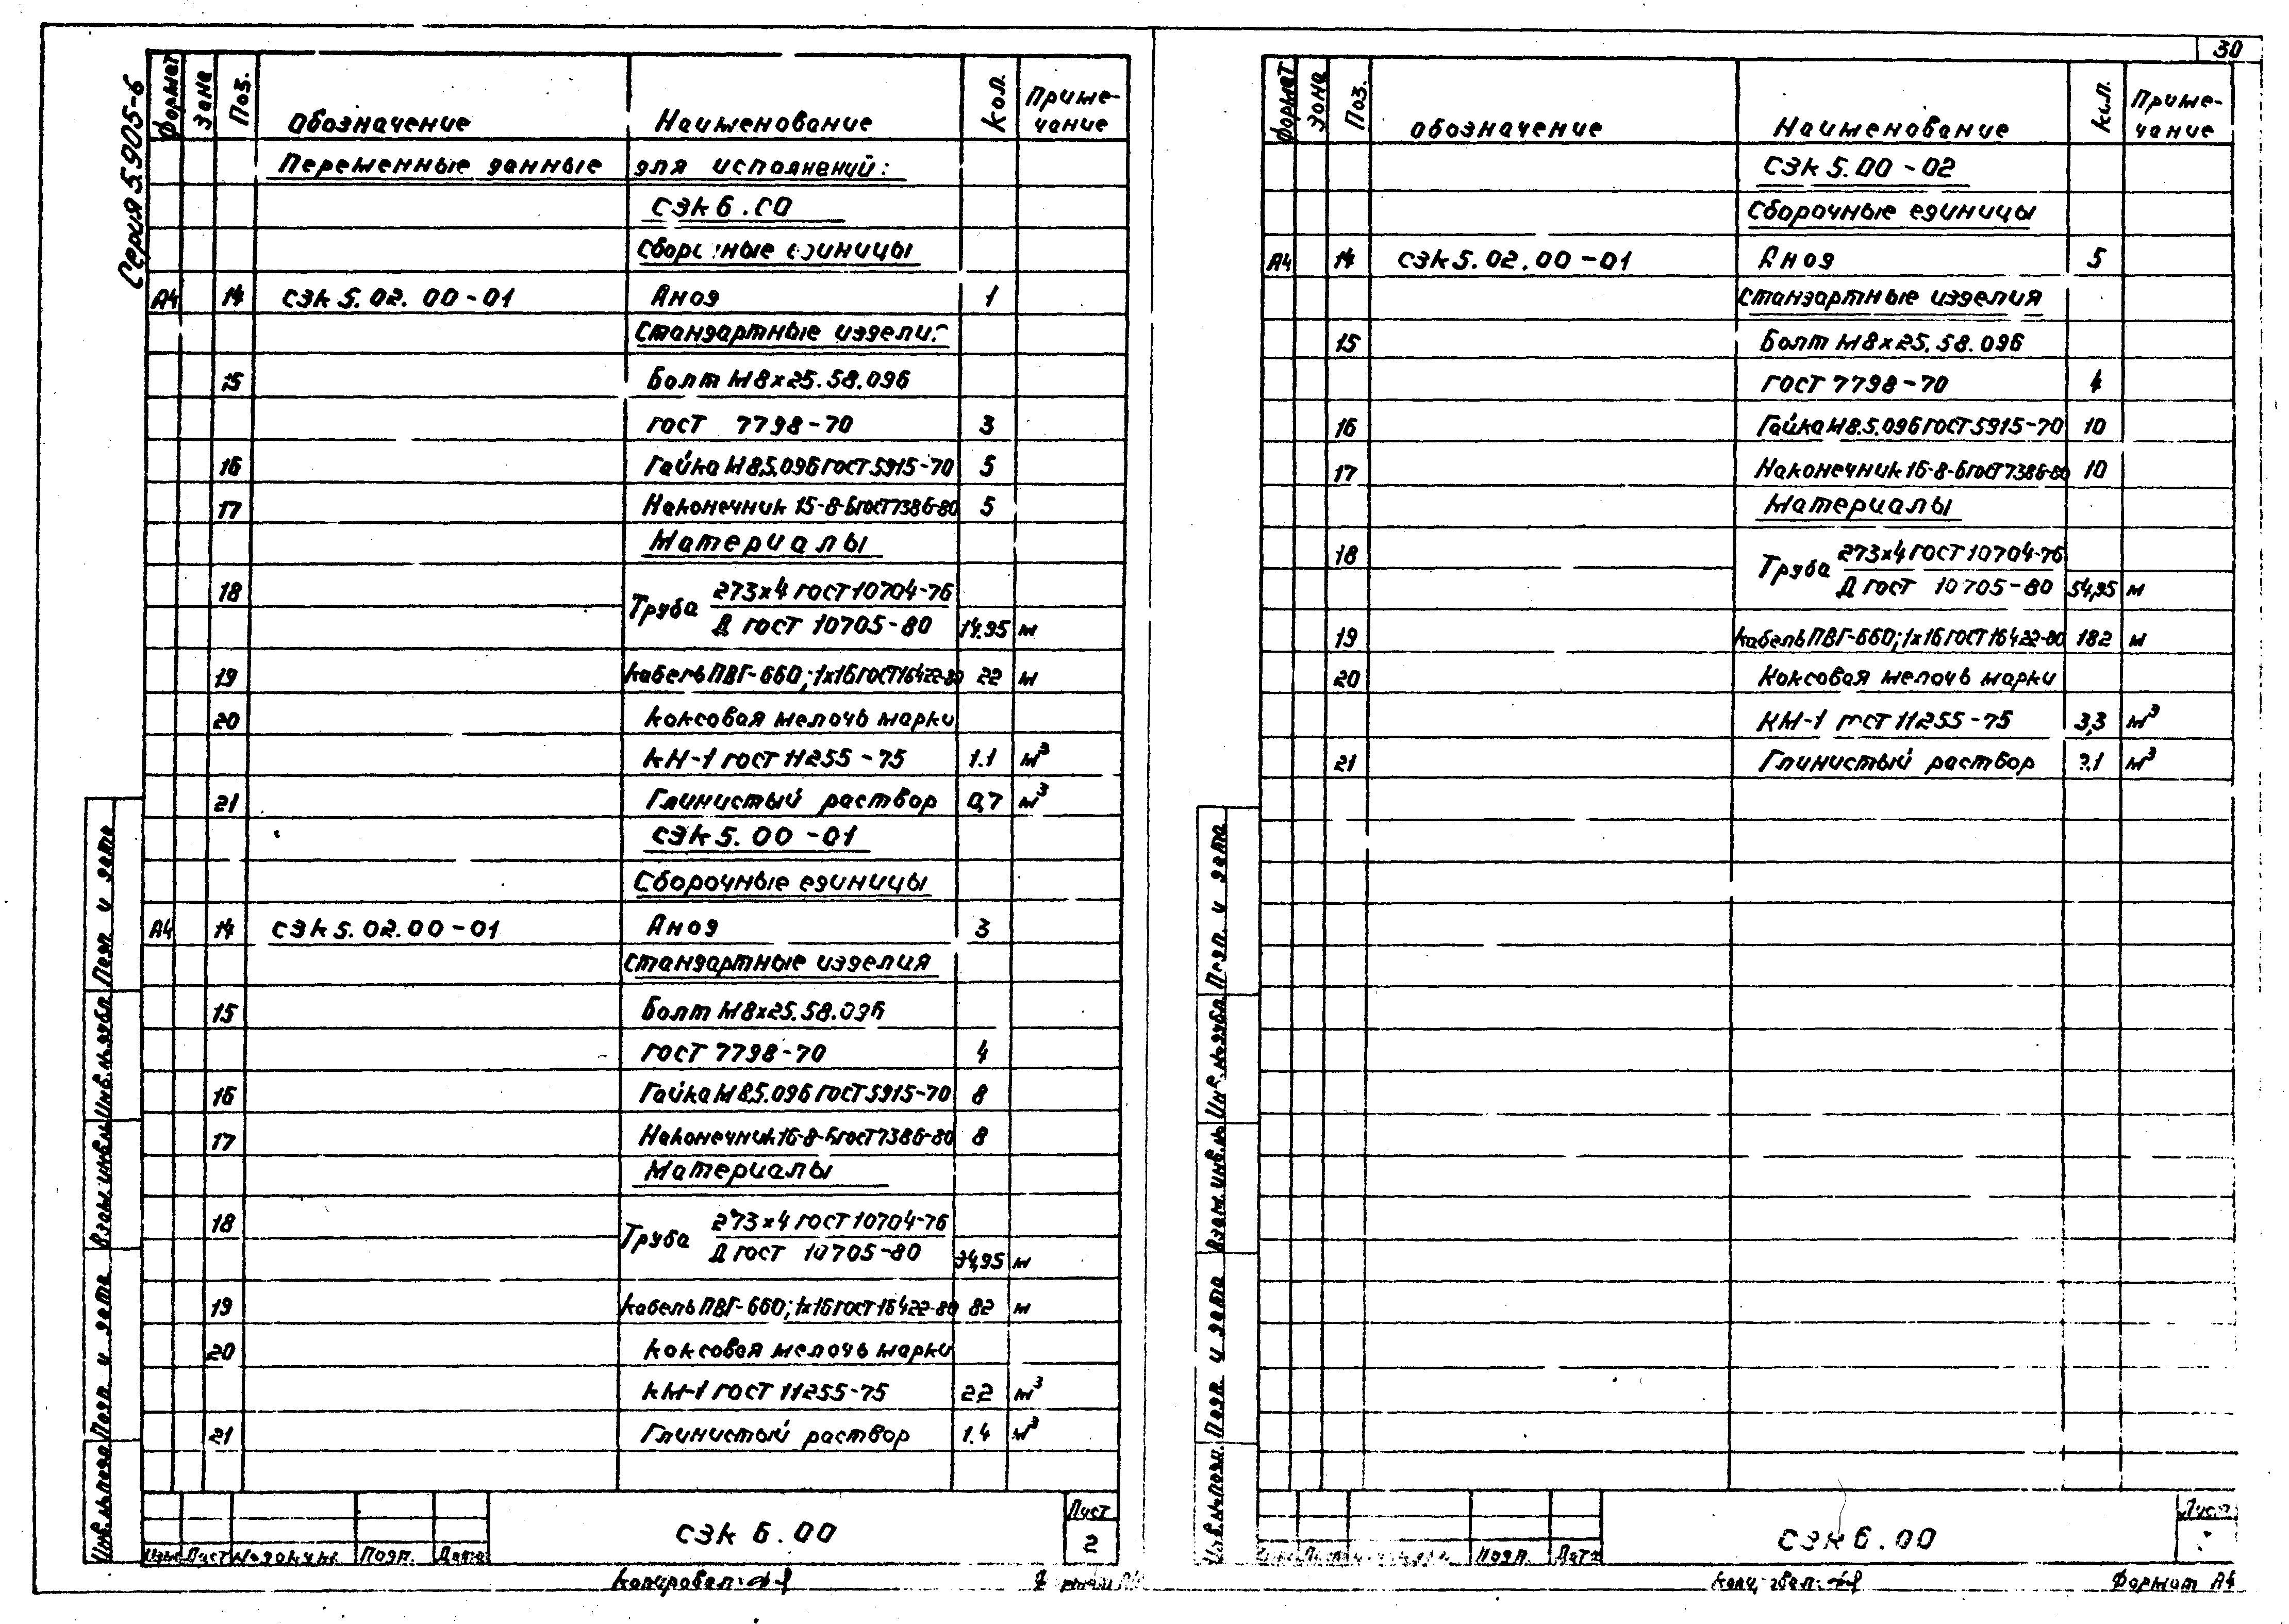 30
Серия 5.905-6
Формат Зона Поз. Обозначение Наименование Кол. Приме-
чание
Переменные данные для исполнений:
СЭК 6.00
Сборочные единицы
А4 14 СЭК 5.02.00-01 Анод 1
Стандартные изделия
15 Болт М8х25.58.096
ГОСТ 7798-70 3
16 Гайка М8.5.096 ГОСТ 5915-70 5
17 Наконечник 16-8-6 ГОСТ 7386-80 5
Материалы
18 Труба 273х4 ГОСТ 10704-76
Д ГОСТ 10705-80 14.95 м
19 Кабель ПВГ-660; 1х16 ГОСТ 16422-80 22 м
20 Коксовая мелочь марки
КМ-1 ГОСТ 11255-75 1.1 м³
21 Глинистый раствор 0,7 м³
СЭК 5.00-01
Сборочные единицы
А4 14 СЭК 5.02.00-01 Анод 3
Стандартные изделия
15 Болт М8х25.58.096
ГОСТ 7798-70 4
16 Гайка М8.5.096 ГОСТ 5915-70 8
17 Наконечник 16-8-6 ГОСТ 7386-80 8
Материалы
18 Труба 273х4 ГОСТ 10704-76
Д ГОСТ 10705-80 34,95 м
19 Кабель ПВГ-660; 1х16 ГОСТ 16422-80 82 м
20 Коксовая мелочь марки
КМ-1 ГОСТ 11255-75 2,2 м³
21 Глинистый раствор 1.4 м³
Инв.№подл. Подп. и дата Взам.инв.№ Инв.№дубл. Подп. и дата
Изм. Лист № докум. Подп. Дата
СЭК 6.00
Лист
2
Копировал:
Формат А4
Формат Зона Поз. Обозначение Наименование Кол. Приме-
чание
СЭК 5.00-02
Сборочные единицы
А4 14 СЭК 5.02.00-01 Анод 5
Стандартные изделия
15 Болт М8х25.58.096
ГОСТ 7798-70 4
16 Гайка М8.5.096 ГОСТ 5915-70 10
17 Наконечник 16-8-6 ГОСТ 7386-80 10
Материалы
18 Труба 273х4 ГОСТ 10704-76
Д ГОСТ 10705-80 54,95 м
19 Кабель ПВГ-660; 1х16 ГОСТ 16422-80 182 м
20 Коксовая мелочь марки
КМ-1 ГОСТ 11255-75 3,3 м³
21 Глинистый раствор м³
Инв.№подл. Подп. и дата Взам.инв.№ Инв.№дубл. Подп. и дата
Подп. Дата
СЭК 6.00
Лист
Копировал:
Формат А4